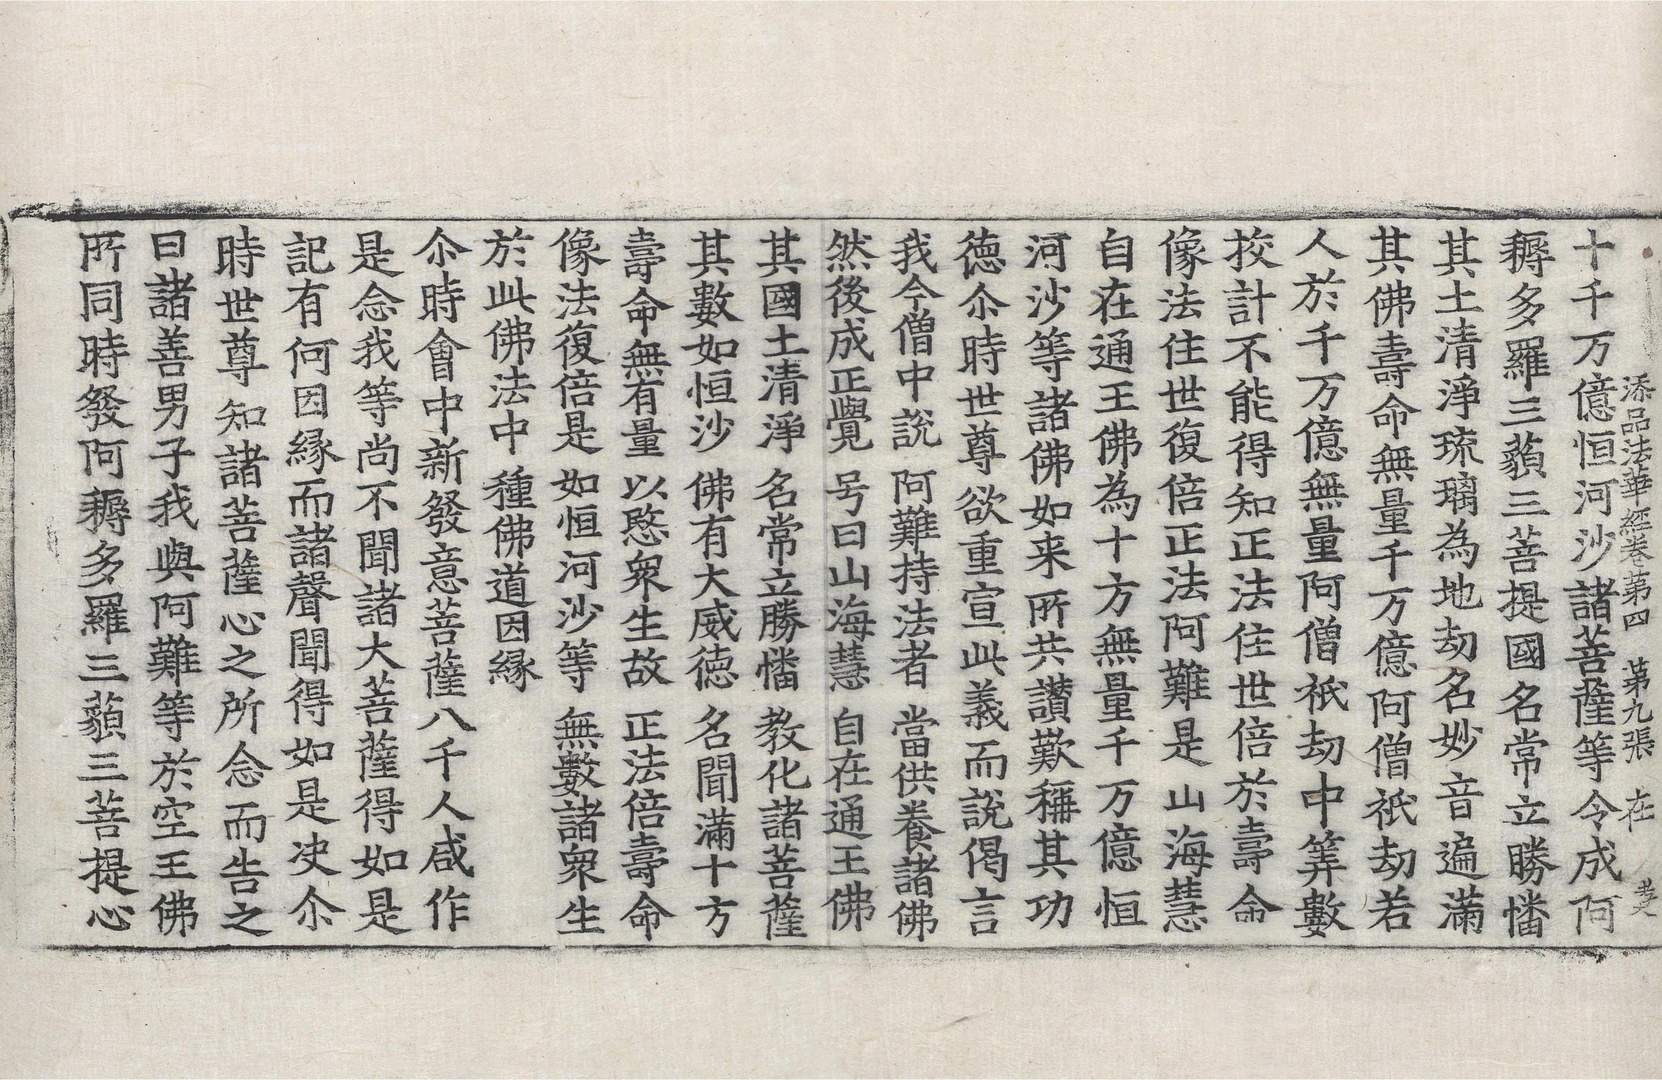 添品法華經卷第四　第九張　在
十千万億恒河沙諸菩薩等令成阿
耨多羅三藐三菩提國名常立勝幡
其土清淨琉璃為地劫名妙音遍滿
其佛壽命無量千万億阿僧祇劫若
人於千万億無量阿僧祇劫中筭數
挍計不能得知正法住世倍於壽命
像法住世復倍正法阿難是山海慧
自在通王佛為十方無量千万億恒
河沙等諸佛如来所共讃歎稱其功
徳尒時世尊欲重宣此義而說偈言
我今僧中說　阿難持法者　當供養諸佛
然後成正覺　号曰山海慧　自在通王佛
其國土清淨　名常立勝幡　教化諸菩薩
其數如恒沙　佛有大威徳　名聞滿十方
壽命無有量　以愍衆生故　正法倍壽命
像法復倍是　如恒河沙等　無數諸衆生
於此佛法中　種佛道因緣
尒時會中新發意菩薩八千人咸作
是念我等尚不聞諸大菩薩得如是
記有何因緣而諸聲聞得如是决尒
時世尊知諸菩薩心之所念而告之
曰諸善男子我與阿難等於空王佛
所同時發阿耨多羅三藐三菩提心